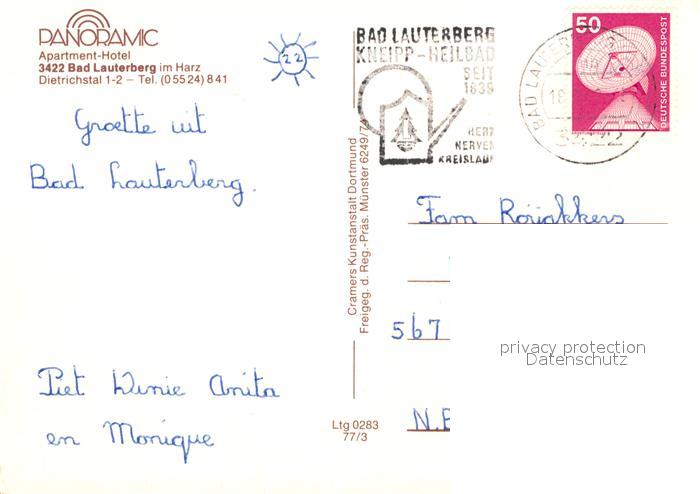 PANORAMIC
Apartment-Hotel
3422 Bad Lauterberg im Harz
Dietrichstal 1-2 – Tel. (0 55 24) 8 41
22
Groette uit
Bad Lauterberg.
Piet Winie Anita
en Monique
Cramers Kunstanstalt Dortmund
Freigeg. d. Reg.-Präs. Münster 6249/7
Ltg 0283
77/3
BAD LAUTERBERG
KNEIPP-HEILBAD
SEIT
1839
HERZ
NERVEN
KREISLAUF
BAD LAUTERBE
18
50
DEUTSCHE BUNDESPOST
Fam Roijakkers
567
N.B
privacy protection
Datenschutz